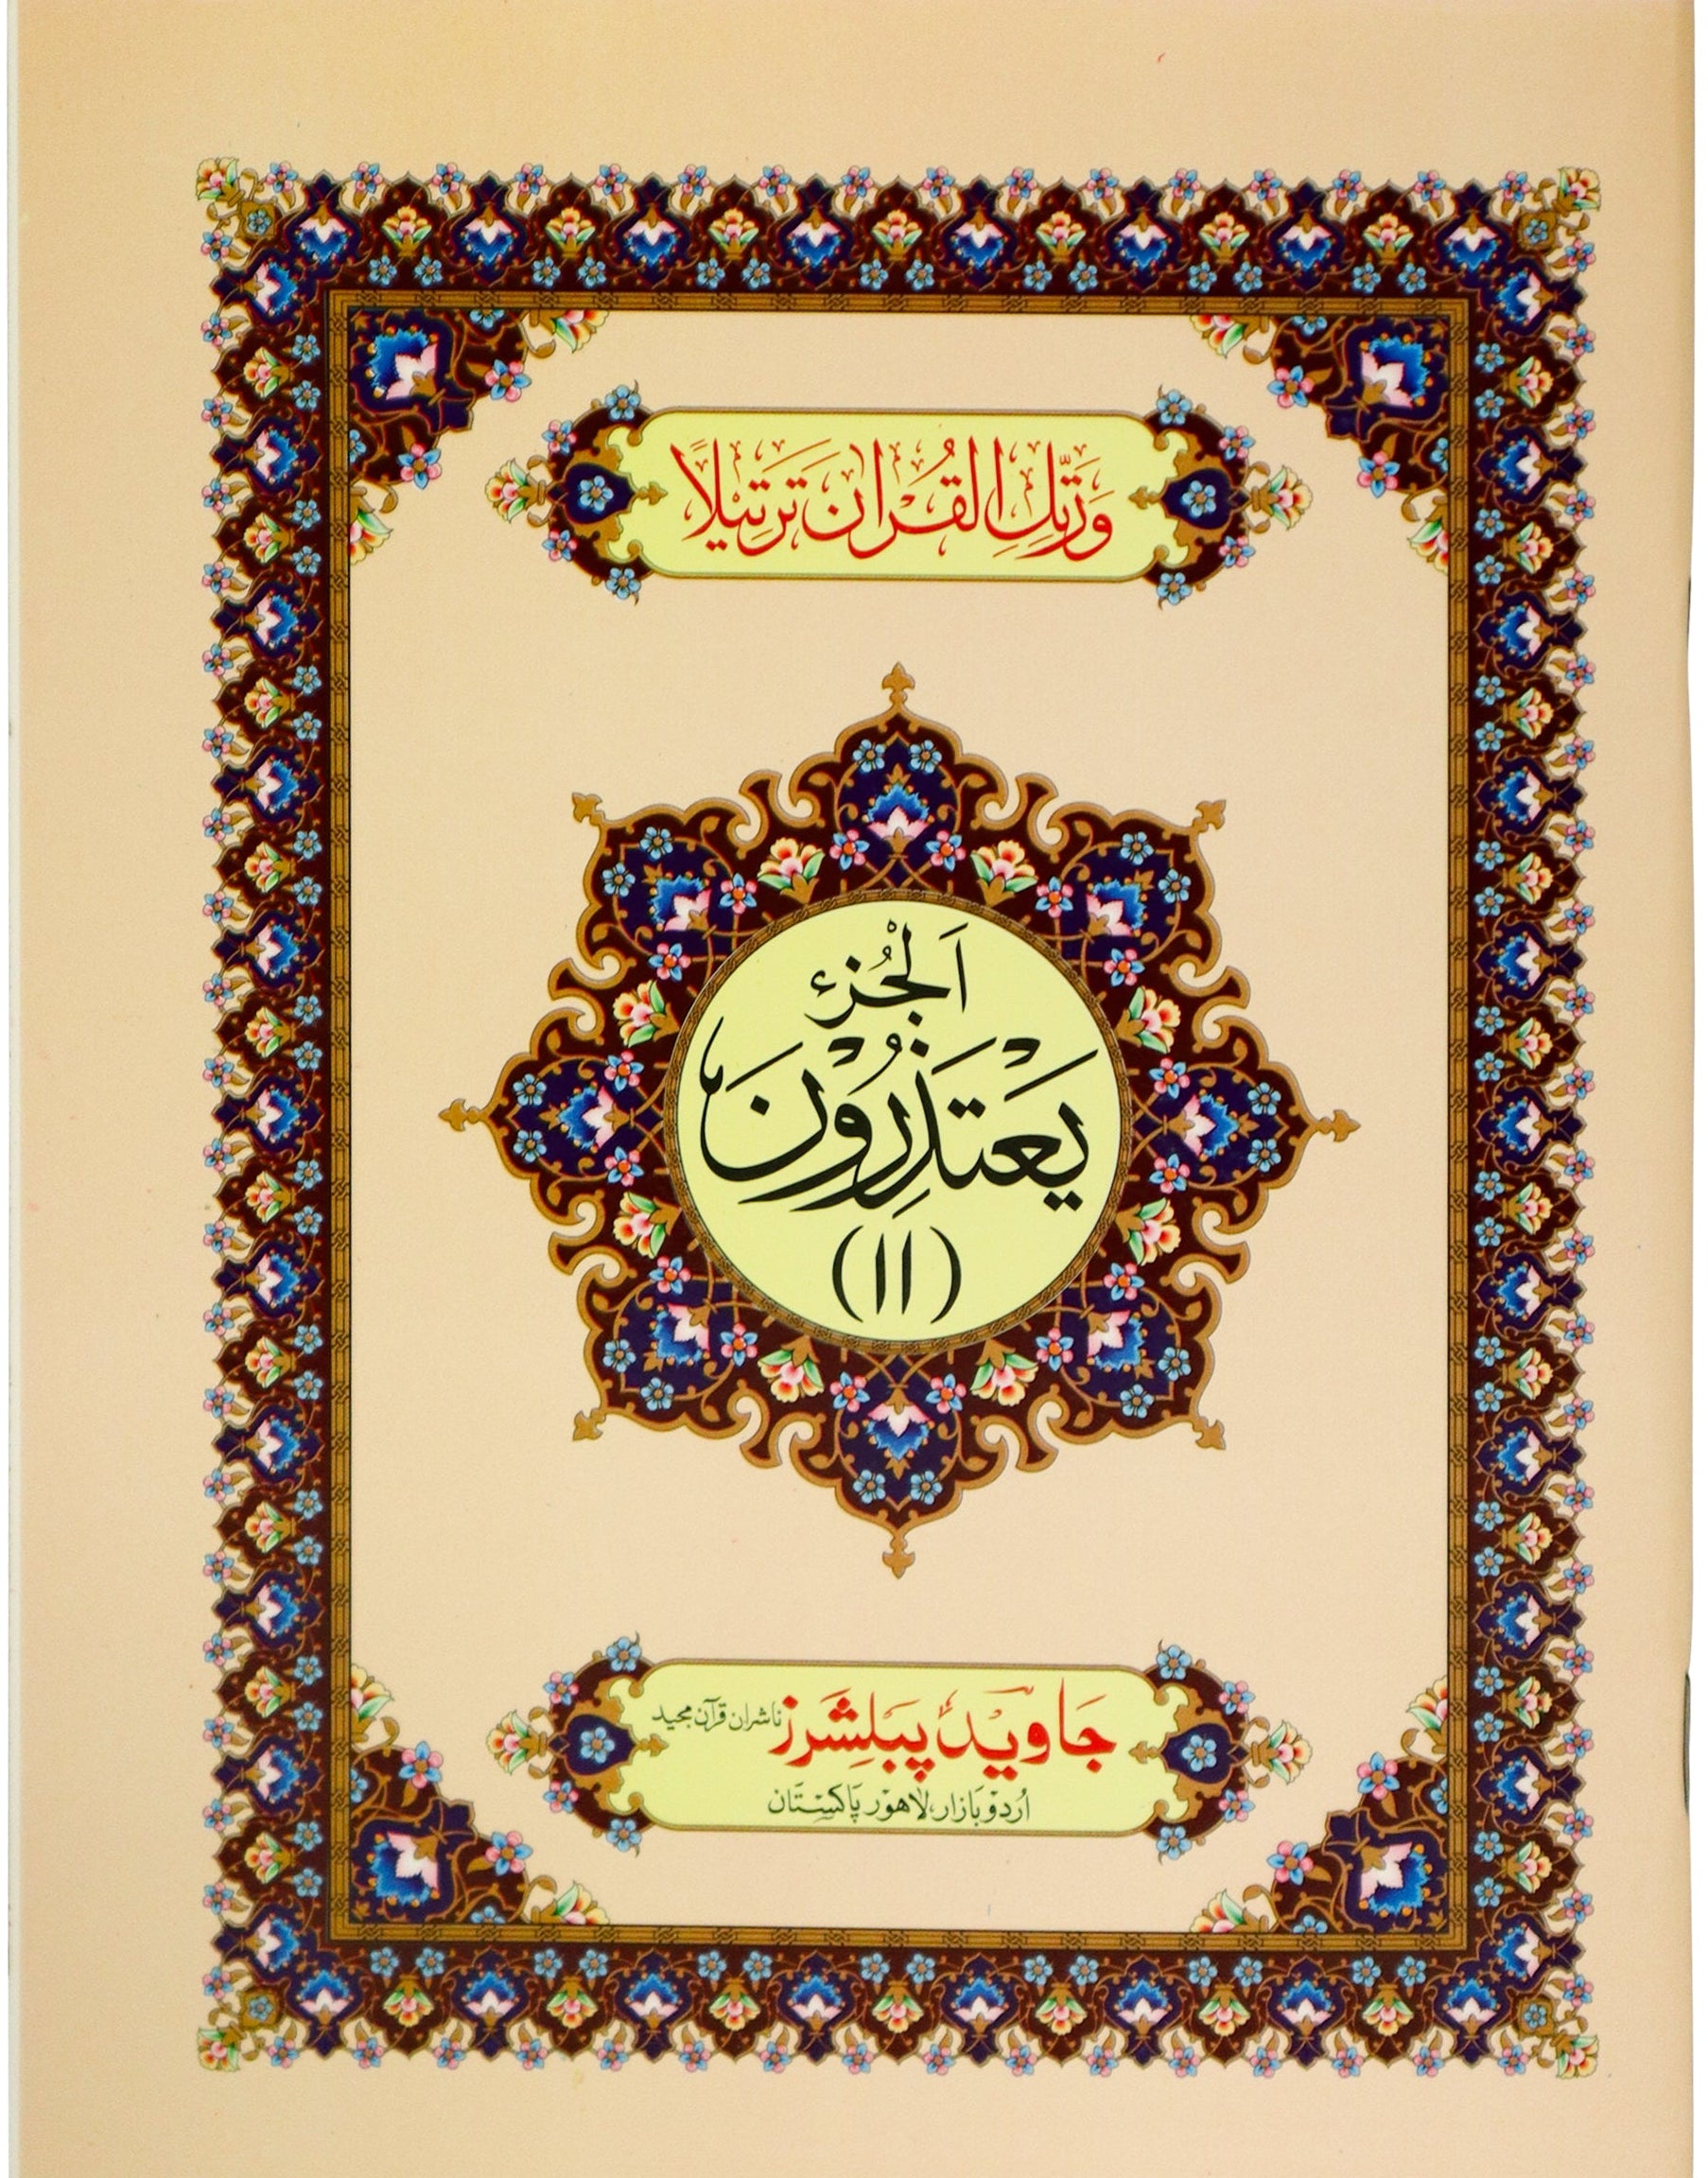 وَرَتِّلِ الْقُرْاٰنَ تَرْتِيْلًا
اَلْجُزْء
يَعْتَذِرُوْنَ
(۱۱)
جَاوِيْد پَبلِشَرز ناشران قرآن مجید
اُردو بَازار، لاھور پَاکِسْتَان